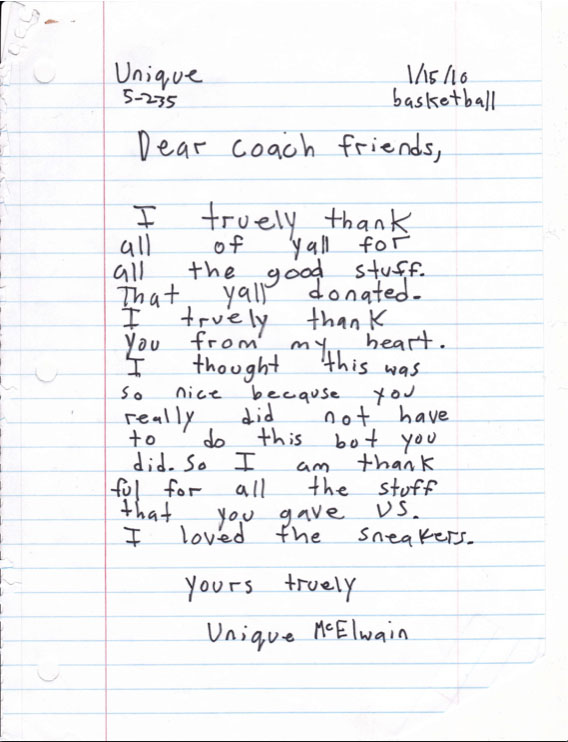 Unique 1/15/10
5-235 basketball
Dear coach friends,
I truely thank
all of yall for
all the good stuff.
That yall donated.
I truely thank
you from my heart.
I thought this was
so nice because you
really did not have
to do this bot you
did. So I am thank
ful for all the stuff
that you gave US.
I loved the sneakers.
yours truely
Unique McElwain